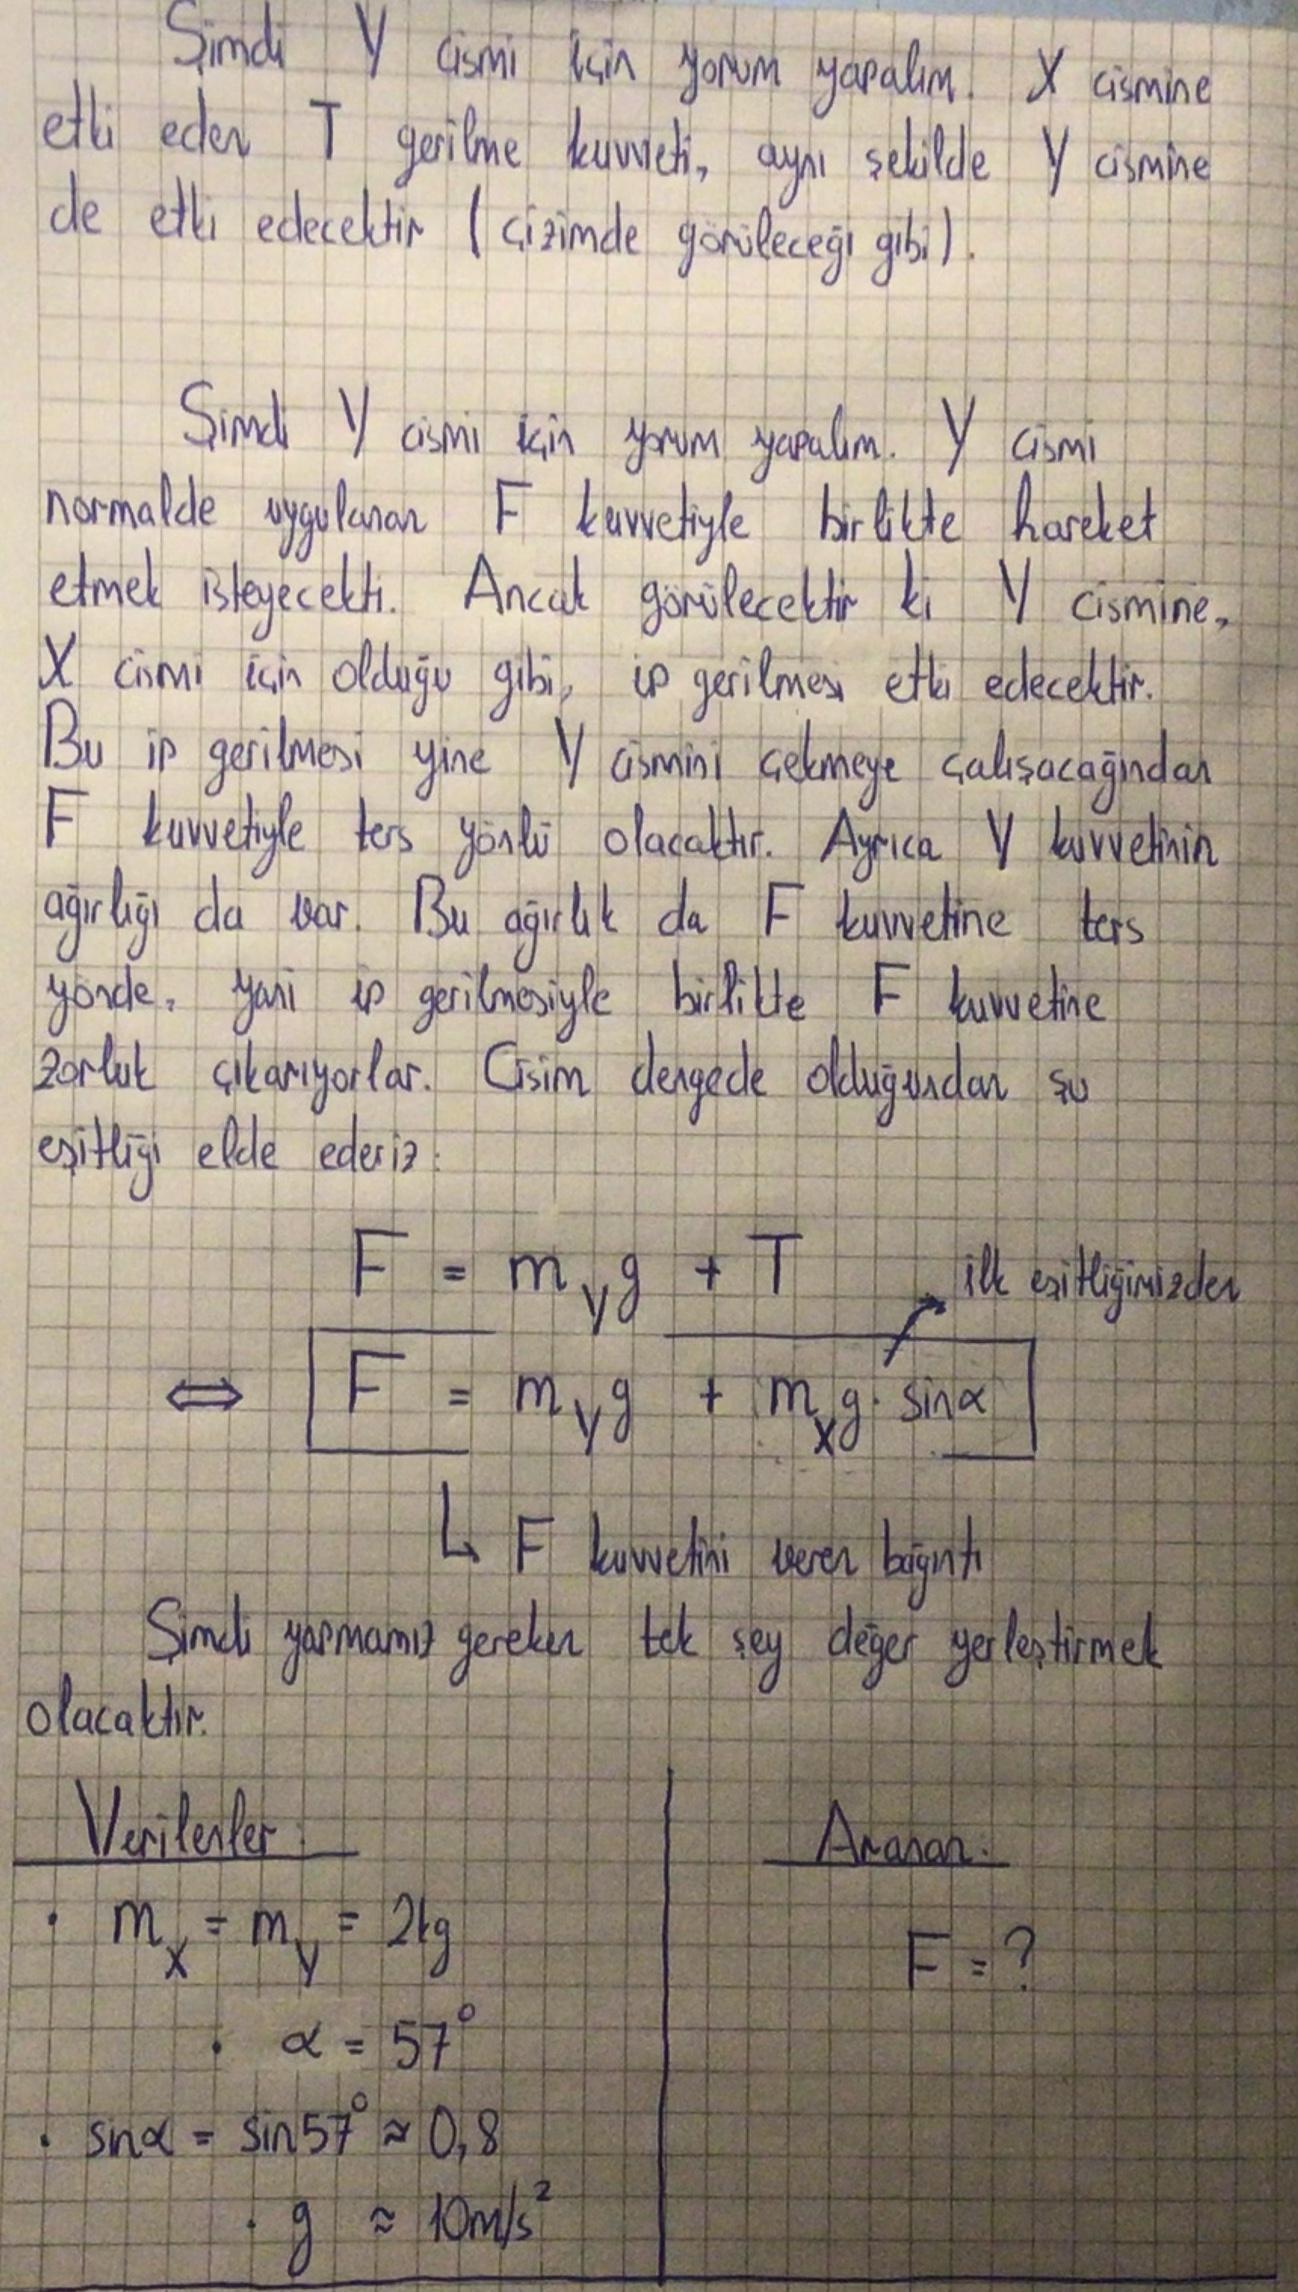 Şimdi Y cismi için yorum yapalım. X cismine
etki eden T gerilme kuvveti, aynı şekilde Y cismine
de etki edecektir (çizimde görüleceği gibi).
Şimdi Y cismi için yorum yapalım. Y cismi
normalde uygulanan F kuvvetiyle birlikte hareket
etmek isteyecekti. Ancak görülecektir ki Y cismine,
X cismi için olduğu gibi, ip gerilmesi etki edecektir.
Bu ip gerilmesi yine Y cismini çekmeye çalışacağından
F kuvvetiyle ters yönlü olacaktır. Ayrıca Y kuvvetinin
ağırlığı da var. Bu ağırlık da F kuvvetine ters
yönde, yani ip gerilmesiyle birlikte F kuvvetine
zorluk çıkarıyorlar. Cisim dengede olduğundan şu
eşitliği elde ederiz:
F = m_Y g + T
ilk eşitliğimizden
⇔ F = m_Y g + m_X g · sinα
↳ F kuvvetini veren bağıntı
Şimdi yapmamız gereken tek şey değer yerleştirmek
olacaktır.
Verilenler:
· m_X = m_Y = 2kg
· α = 57°
· sinα = sin57° ≈ 0,8
· g ≈ 10m/s²
Aranan:
F = ?